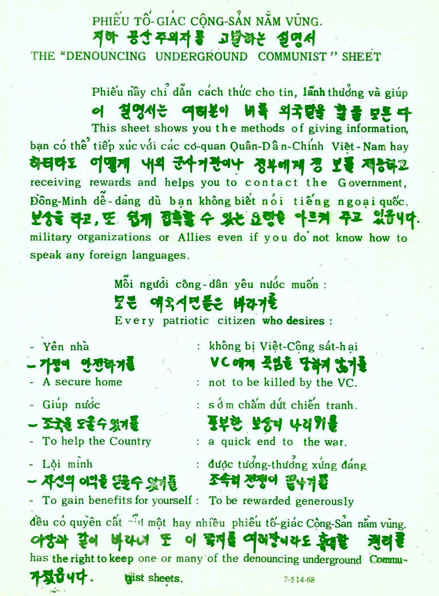 PHIẾU TỐ-GIÁC CỘNG-SẢN NẰM VÙNG.
지하 공산주의자를 고발하는 설명서
THE "DENOUNCING UNDERGROUND COMMUNIST" SHEET
Phiếu nầy chỉ dẫn cách thức cho tin, lãnh thưởng và giúp
이 설명서는 여러분이 비록 외국말을 할 줄 모른다
This sheet shows you the methods of giving information,
bạn có thể tiếp xúc với các cơ-quan Quân-Dân-Chính Việt-Nam hay
하더라도 어떻게 내외 군사기관이나 정부에게 정보를 제공하고
receiving rewards and helps you to contact the Government,
Đồng-Minh dễ-dàng dù bạn không biết nói tiếng ngoại quốc.
보상을 타고, 또 쉽게 접촉할 수 있는 요령을 아르켜 주고 있읍니다.
military organizations or Allies even if you do not know how to
speak any foreign languages.
Mỗi người công-dân yêu nước muốn :
모든 애국시민들은 바라기를
Every patriotic citizen who desires :
- Yên nhà : không bị Việt-Cộng sát-hại
- 가정이 안전하기를 VC에게 죽임을 당하지 않기를
- A secure home : not to be killed by the VC.
- Giúp nước : sớm chấm dứt chiến tranh.
- 조국을 도울수있기를 풍부한 보상이 나리기를
- To help the Country : a quick end to the war.
- Lợi mình : được tưởng-thưởng xứng đáng
- 자신의 이익을 얻을수 있기를 조속히 전쟁이 끝나기를
- To gain benefits for yourself : To be rewarded generously
đều có quyền cất một hay nhiều phiếu tố-giác Cộng-Sản nằm vùng.
이상과 같이 바라며 또 이 쪽지를 여러장이라도 휴대할 권리를
has the right to keep one or many of the denouncing underground Commu-
가졌읍니다. nist sheets.
7-514-68